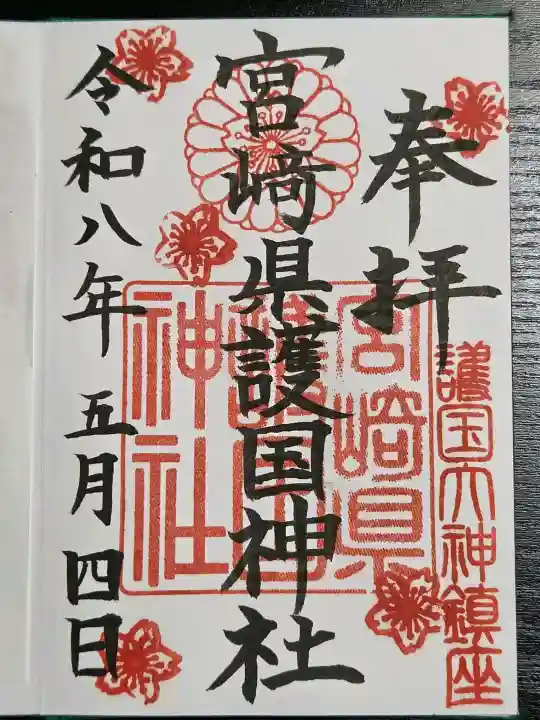 奉拝
護国大神鎮座
宮崎県護国神社
宮崎県
護国
神社
令和八年五月四日